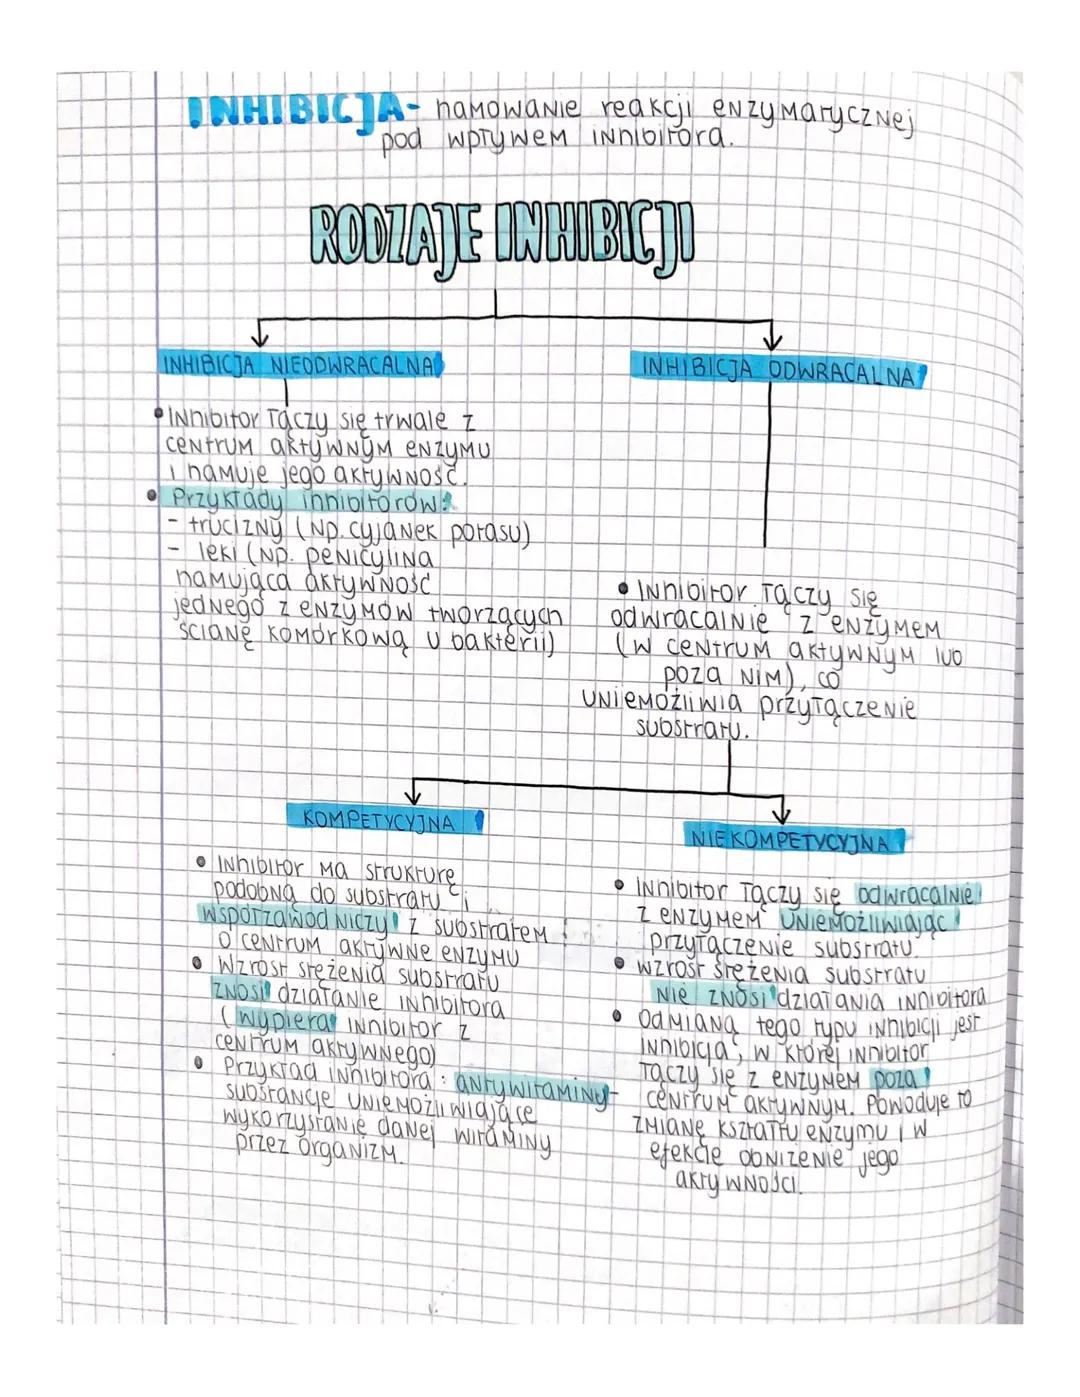 INHIBICJA- hamowanie reakcji enzymatycznej
pod wpływem inhibitora.
RODZAJE INHIBICJI
INHIBICJA NIEODWRACALNA
• Inhibitor łączy się trwale z
centrum aktywnym enzymu
i hamuje jego aktywność.
• Przykłady inhibitorów:
- trucizny (np. cyjanek potasu)
- leki (np. penicylina
hamująca aktywność
jednego z enzymów tworzących
ścianę komórkową u bakterii)
INHIBICJA ODWRACALNA
• Inhibitor łączy się
odwracalnie z enzymem
(w centrum aktywnym lub
poza nim), co
uniemożliwia przyłączenie
substratu.
KOMPETYCYJNA
• Inhibitor ma strukturę
podobną do substratu i
współzawodniczy z substratem
o centrum aktywne enzymu
• Wzrost stężenia substratu
znosi działanie inhibitora
(wypiera inhibitor z
centrum aktywnego)
• Przykład inhibitora: antywitaminy-
substancje uniemożliwiające
wykorzystanie danej witaminy
przez organizm.
NIEKOMPETYCYJNA
• Inhibitor łączy się odwracalnie
z enzymem uniemożliwiając
przyłączenie substratu.
• wzrost stężenia substratu
nie znosi działania inhibitora
• Odmianą tego typu inhibicji jest
inhibicja, w której inhibitor
łączy się z enzymem poza
centrum aktywnym. Powoduje to
zmianę kształtu enzymu i w
efekcie obniżenie jego
aktywności.